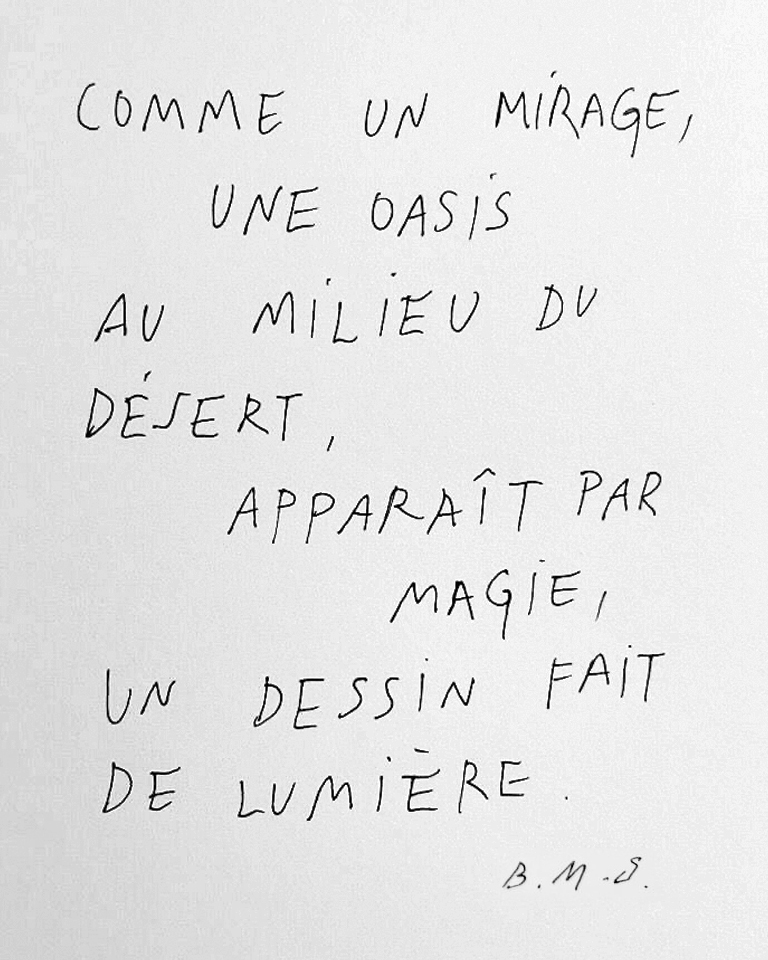 COMME UN MIRAGE,
UNE OASIS
AU MILIEU DU
DÉSERT,
APPARAÎT PAR
MAGIE,
UN DESSIN FAIT
DE LUMIÈRE.
B.M.S.